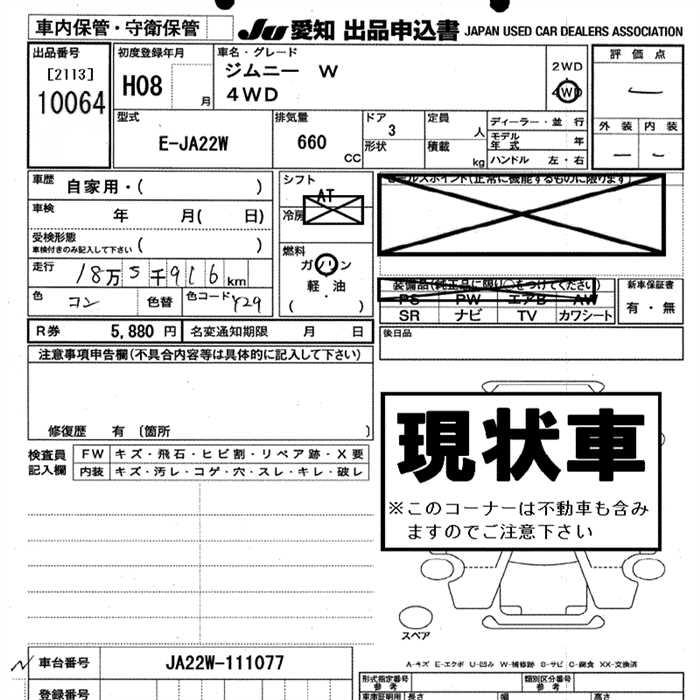 車内保管・守衛保管
JU 愛知 出品申込書 JAPAN USED CAR DEALERS ASSOCIATION
出品番号
[2113]
10064
初度登録年月
H08
月
車名・グレード
ジムニー W
4WD
2WD
4WD
評価点
外装 内装
型式
E-JA22W
排気量
660
CC
ドア
3
形状
定員
人
積載
kg
ディーラー・並行
モデル年式 年
ハンドル 左・右
車歴 自家用・( )
車検 年 月( 日)
受検形態
車検付きのみ記入して下さい ( )
走行 18万5千916km
色 コン 色替 色コード Y29
R券 5,880 円 名変通知期限 月 日
シフト
AT
冷房
燃料
ガソリン
軽・油
( )
セールスポイント(正常に機能するものに限ります)
装備品(純正品に限り○をつけてください)
PS PW エアB AW
SR ナビ TV カワシート
新車保証書
有・無
後日品
注意事項申告欄(不具合内容等は具体的に記入して下さい)
修復歴 有 〔箇所 〕
検査員記入欄
FW キズ・飛石・ヒビ割・リペア跡・X要
内装 キズ・汚レ・コゲ・穴・スレ・キレ・破レ
現状車
※このコーナーは不動車も含み
ますのでご注意下さい
スペア
A-キズ E-エクボ U-凹み W-補修跡 S-サビ C-腐食 XX-交換済
車台番号 JA22W-111077
登録番号
形式指定番号
参考
類別区分番号
参考
車庫証明用 長さ 幅 高さ